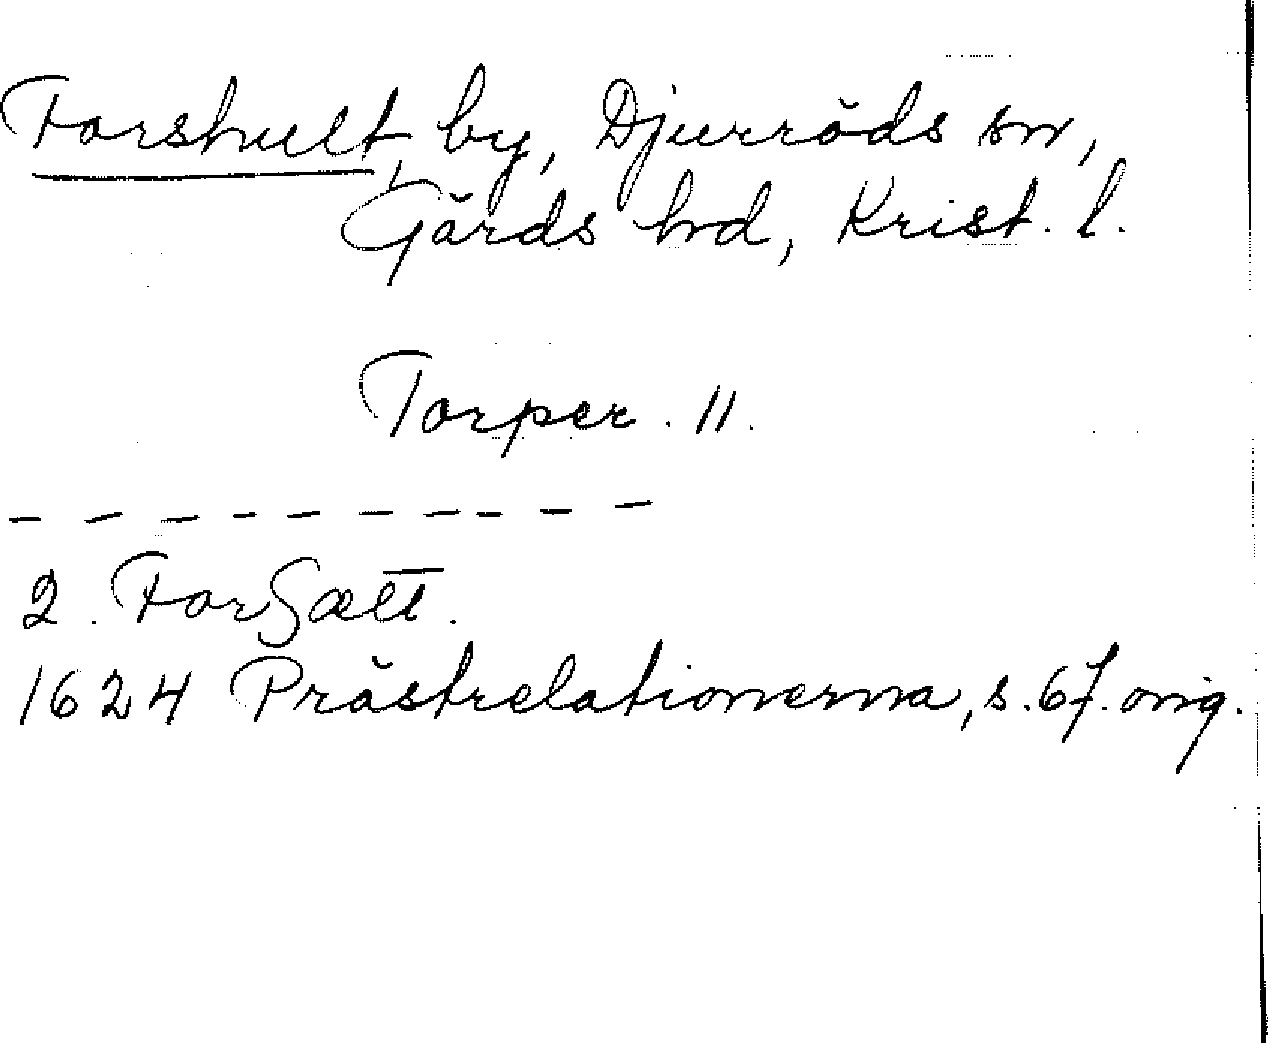 Forshult, by, Djurröds sn,
Gärds hd, Krist. l.
Torper. 11.
— — — — — — — — — —
2. ForSælt.
1624 Prästrelationerna, s. 67. orig.